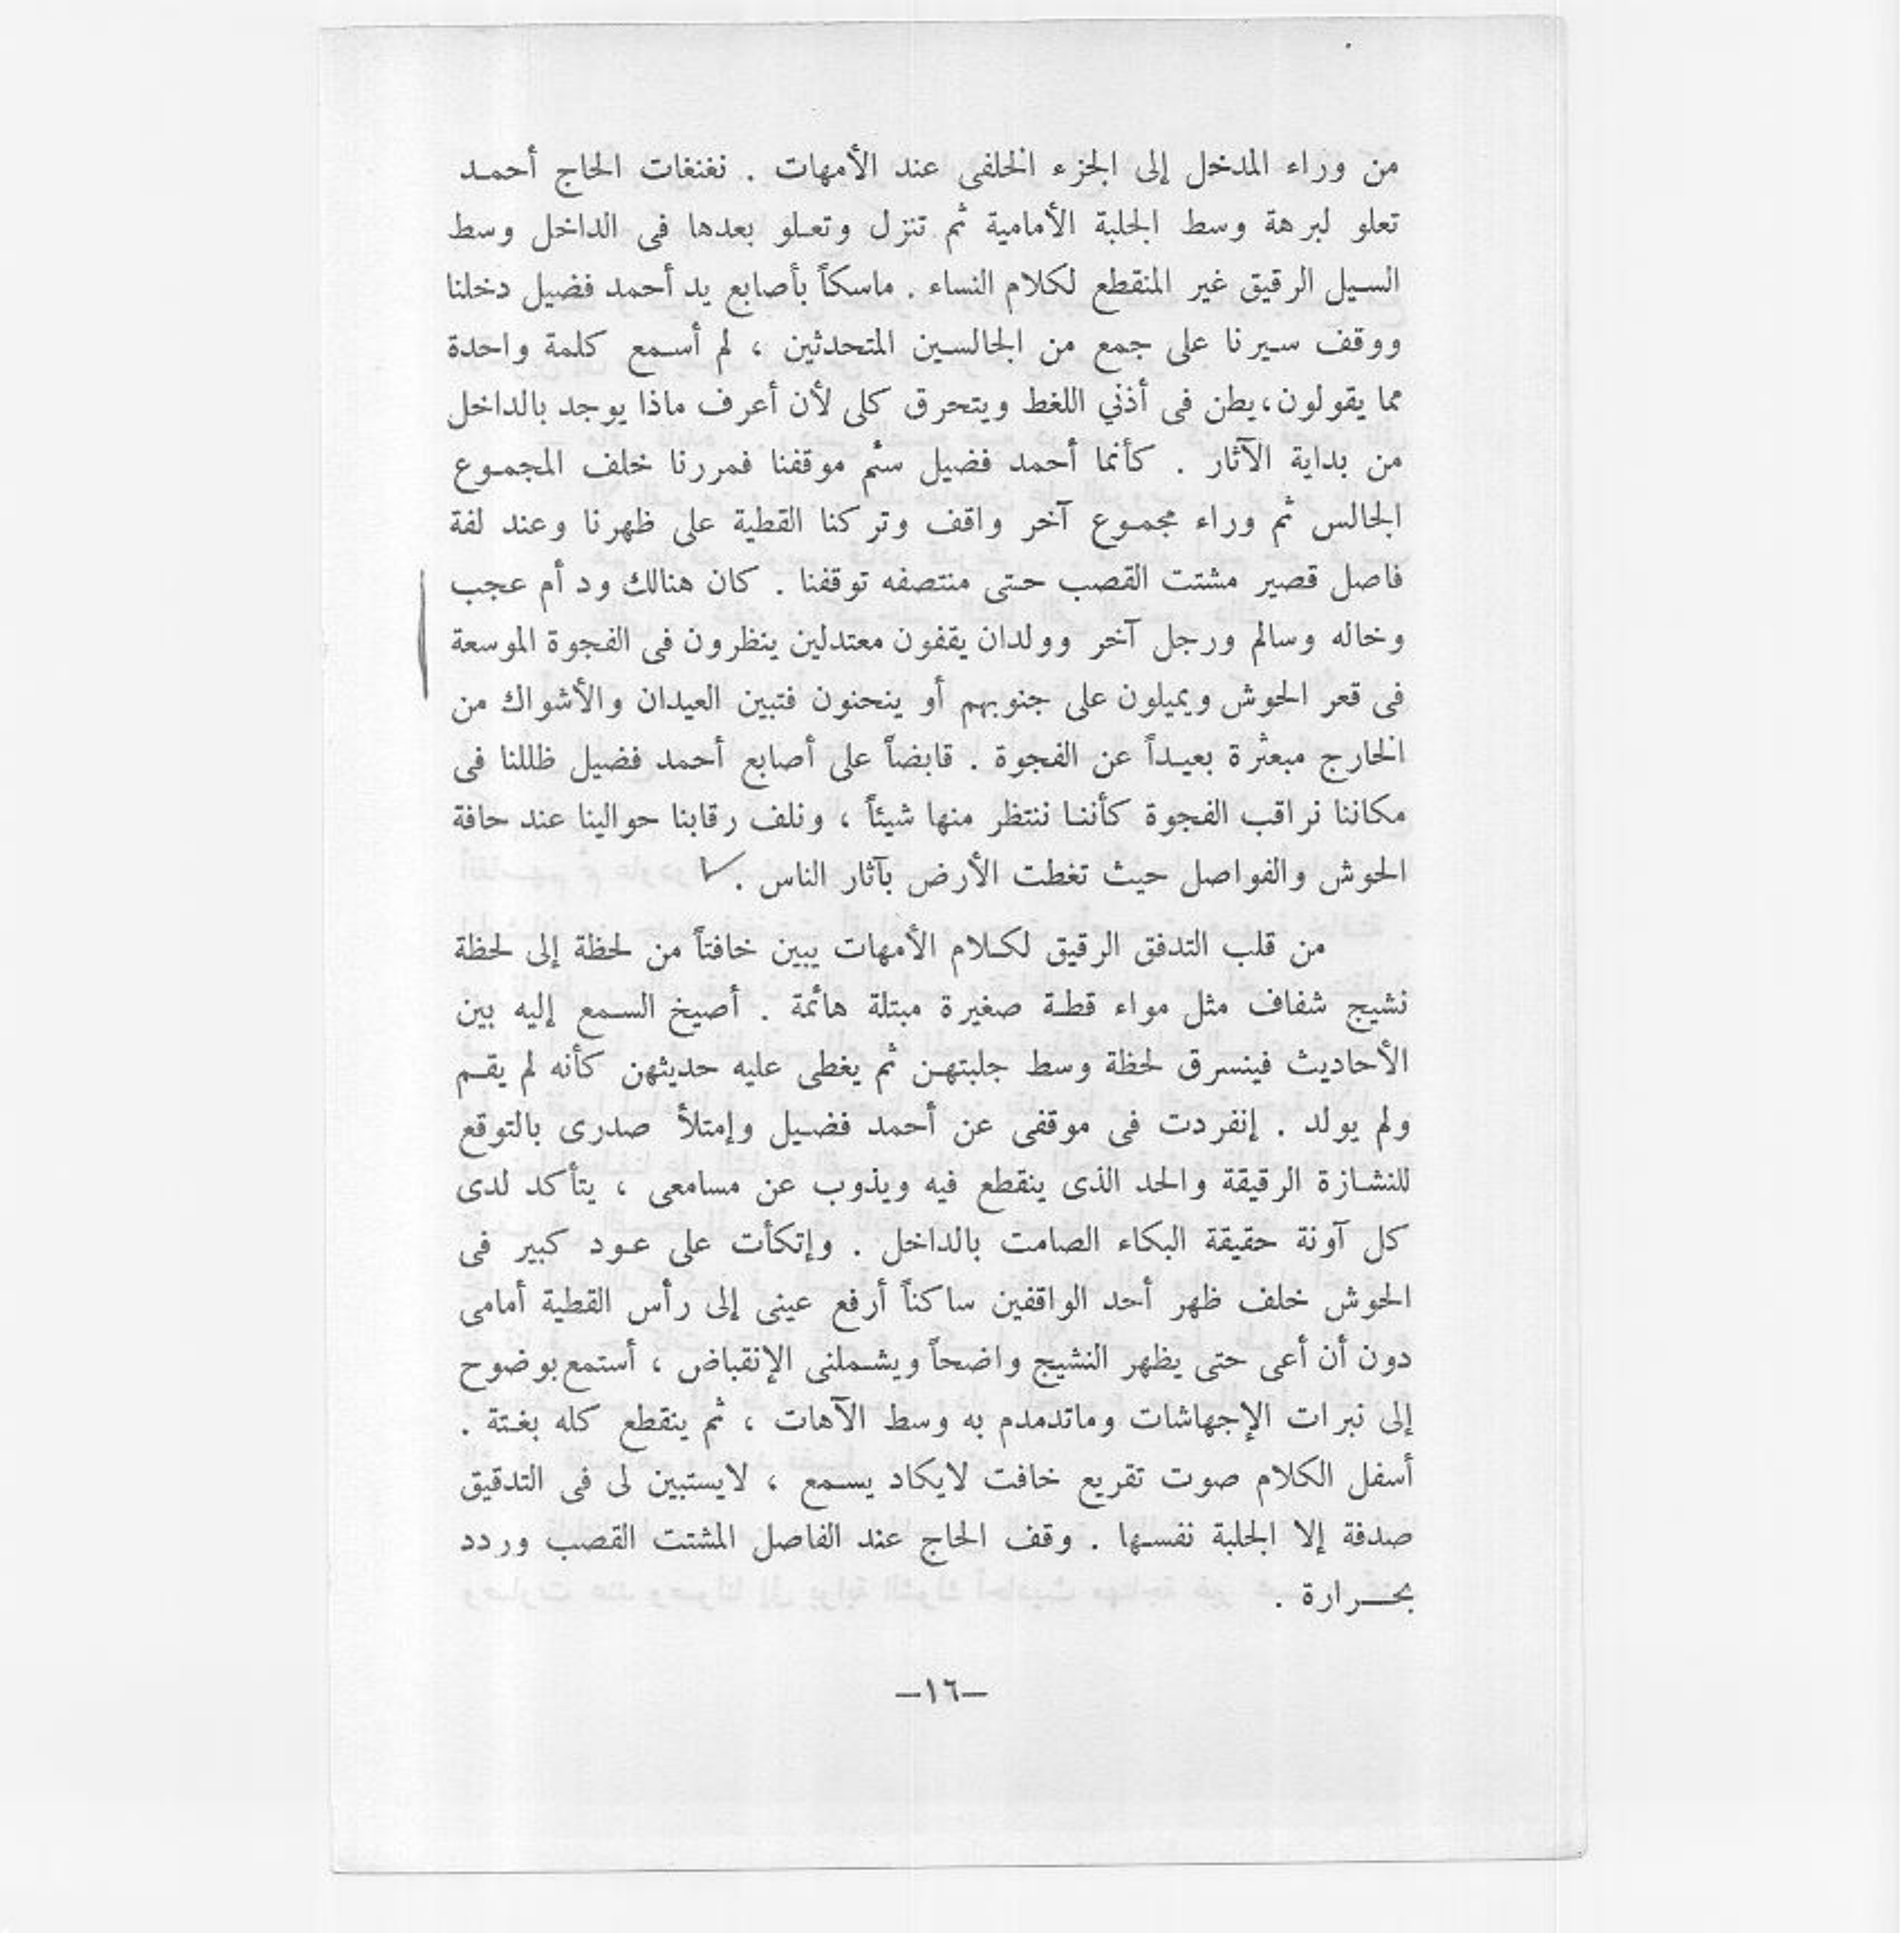 من وراء المدخل إلى الجزء الخلفى عند الأمهات . نغنغات الحاج أحمد
تعلو لبرهة وسط الجلبة الأمامية ثم تنزل وتعلو بعدها فى الداخل وسط
السيل الرقيق غير المنقطع لكلام النساء . ماسكاً بأصابع يد أحمد فضيل دخلنا
ووقف سيرنا على جمع من الجالسين المتحدثين ، لم أسمع كلمة واحدة
مما يقولون،يطن فى أذني اللغط ويتحرق كلى لأن أعرف ماذا يوجد بالداخل
من بداية الآثار . كأنما أحمد فضيل سئم موقفنا فمررنا خلف المجموع
الجالس ثم وراء مجموع آخر واقف وتركنا القطية على ظهرنا وعند لفة
فاصل قصير مشتت القصب حتى منتصفه توقفنا . كان هنالك ود أم عجب
وخاله وسالم ورجل آخر وولدان يقفون معتدلين ينظرون فى الفجوة الموسعة
فى قعر الحوش ويميلون على جنوبهم أو ينحنون فتبين العيدان والأشواك من
الخارج مبعثرة بعيداً عن الفجوة . قابضاً على أصابع أحمد فضيل ظللنا فى
مكاننا نراقب الفجوة كأننا ننتظر منها شيئاً ، ونلف رقابنا حوالينا عند حافة
الحوش والفواصل حيث تغطت الأرض بآثار الناس .
من قلب التدفق الرقيق لكلام الأمهات يبين خافتاً من لحظة إلى لحظة
نشيج شفاف مثل مواء قطة صغيرة مبتلة هائمة . أصيخ السمع إليه بين
الأحاديث فينسرق لحظة وسط جلبتهن ثم يغطى عليه حديثهن كأنه لم يقم
ولم يولد . إنفردت فى موقفى عن أحمد فضيل وإمتلأ صدرى بالتوقع
للنشازة الرقيقة والحد الذى ينقطع فيه ويذوب عن مسامعى ، يتأكد لدى
كل آونة حقيقة البكاء الصامت بالداخل . وإتكأت على عود كبير فى
الحوش خلف ظهر أحد الواقفين ساكناً أرفع عينى إلى رأس القطية أمامى
دون أن أعى حتى يظهر النشيج واضحاً ويشملنى الإنقباض ، أستمع بوضوح
إلى نبرات الإجهاشات وماتدمدم به وسط الآهات ، ثم ينقطع كله بغتة .
أسفل الكلام صوت تقريع خافت لايكاد يسمع ، لايستبين لى فى التدقيق
صدفة إلا الجلبة نفسها . وقف الحاج عند الفاصل المشتت القصب وردد
بحرارة .
–١٦–